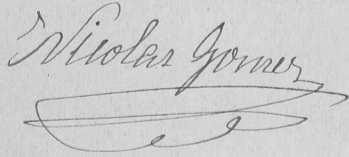 Nicolas Gomez